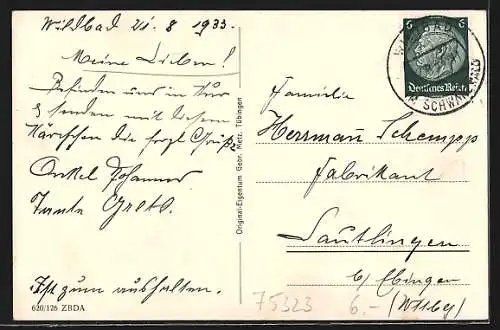 Wildbad 21. 8 1933.
Meine Lieben!
Befinden uns in Kur
& senden mit diesem
Kärtchen die herzl Grüße
Onkel Johannes
Tante Gretl.
Ist zum aushalten.
620/126 ZBDA
Original-Eigentum Gebr. Metz, Tübingen
6 6
Deutsches Reich
WILDBAD
IM SCHWARZWALD
Familie
Herrman Schempp
Fabrikant
Lautlingen
b/ Ebingen
(Wttbg)
75323 6.-